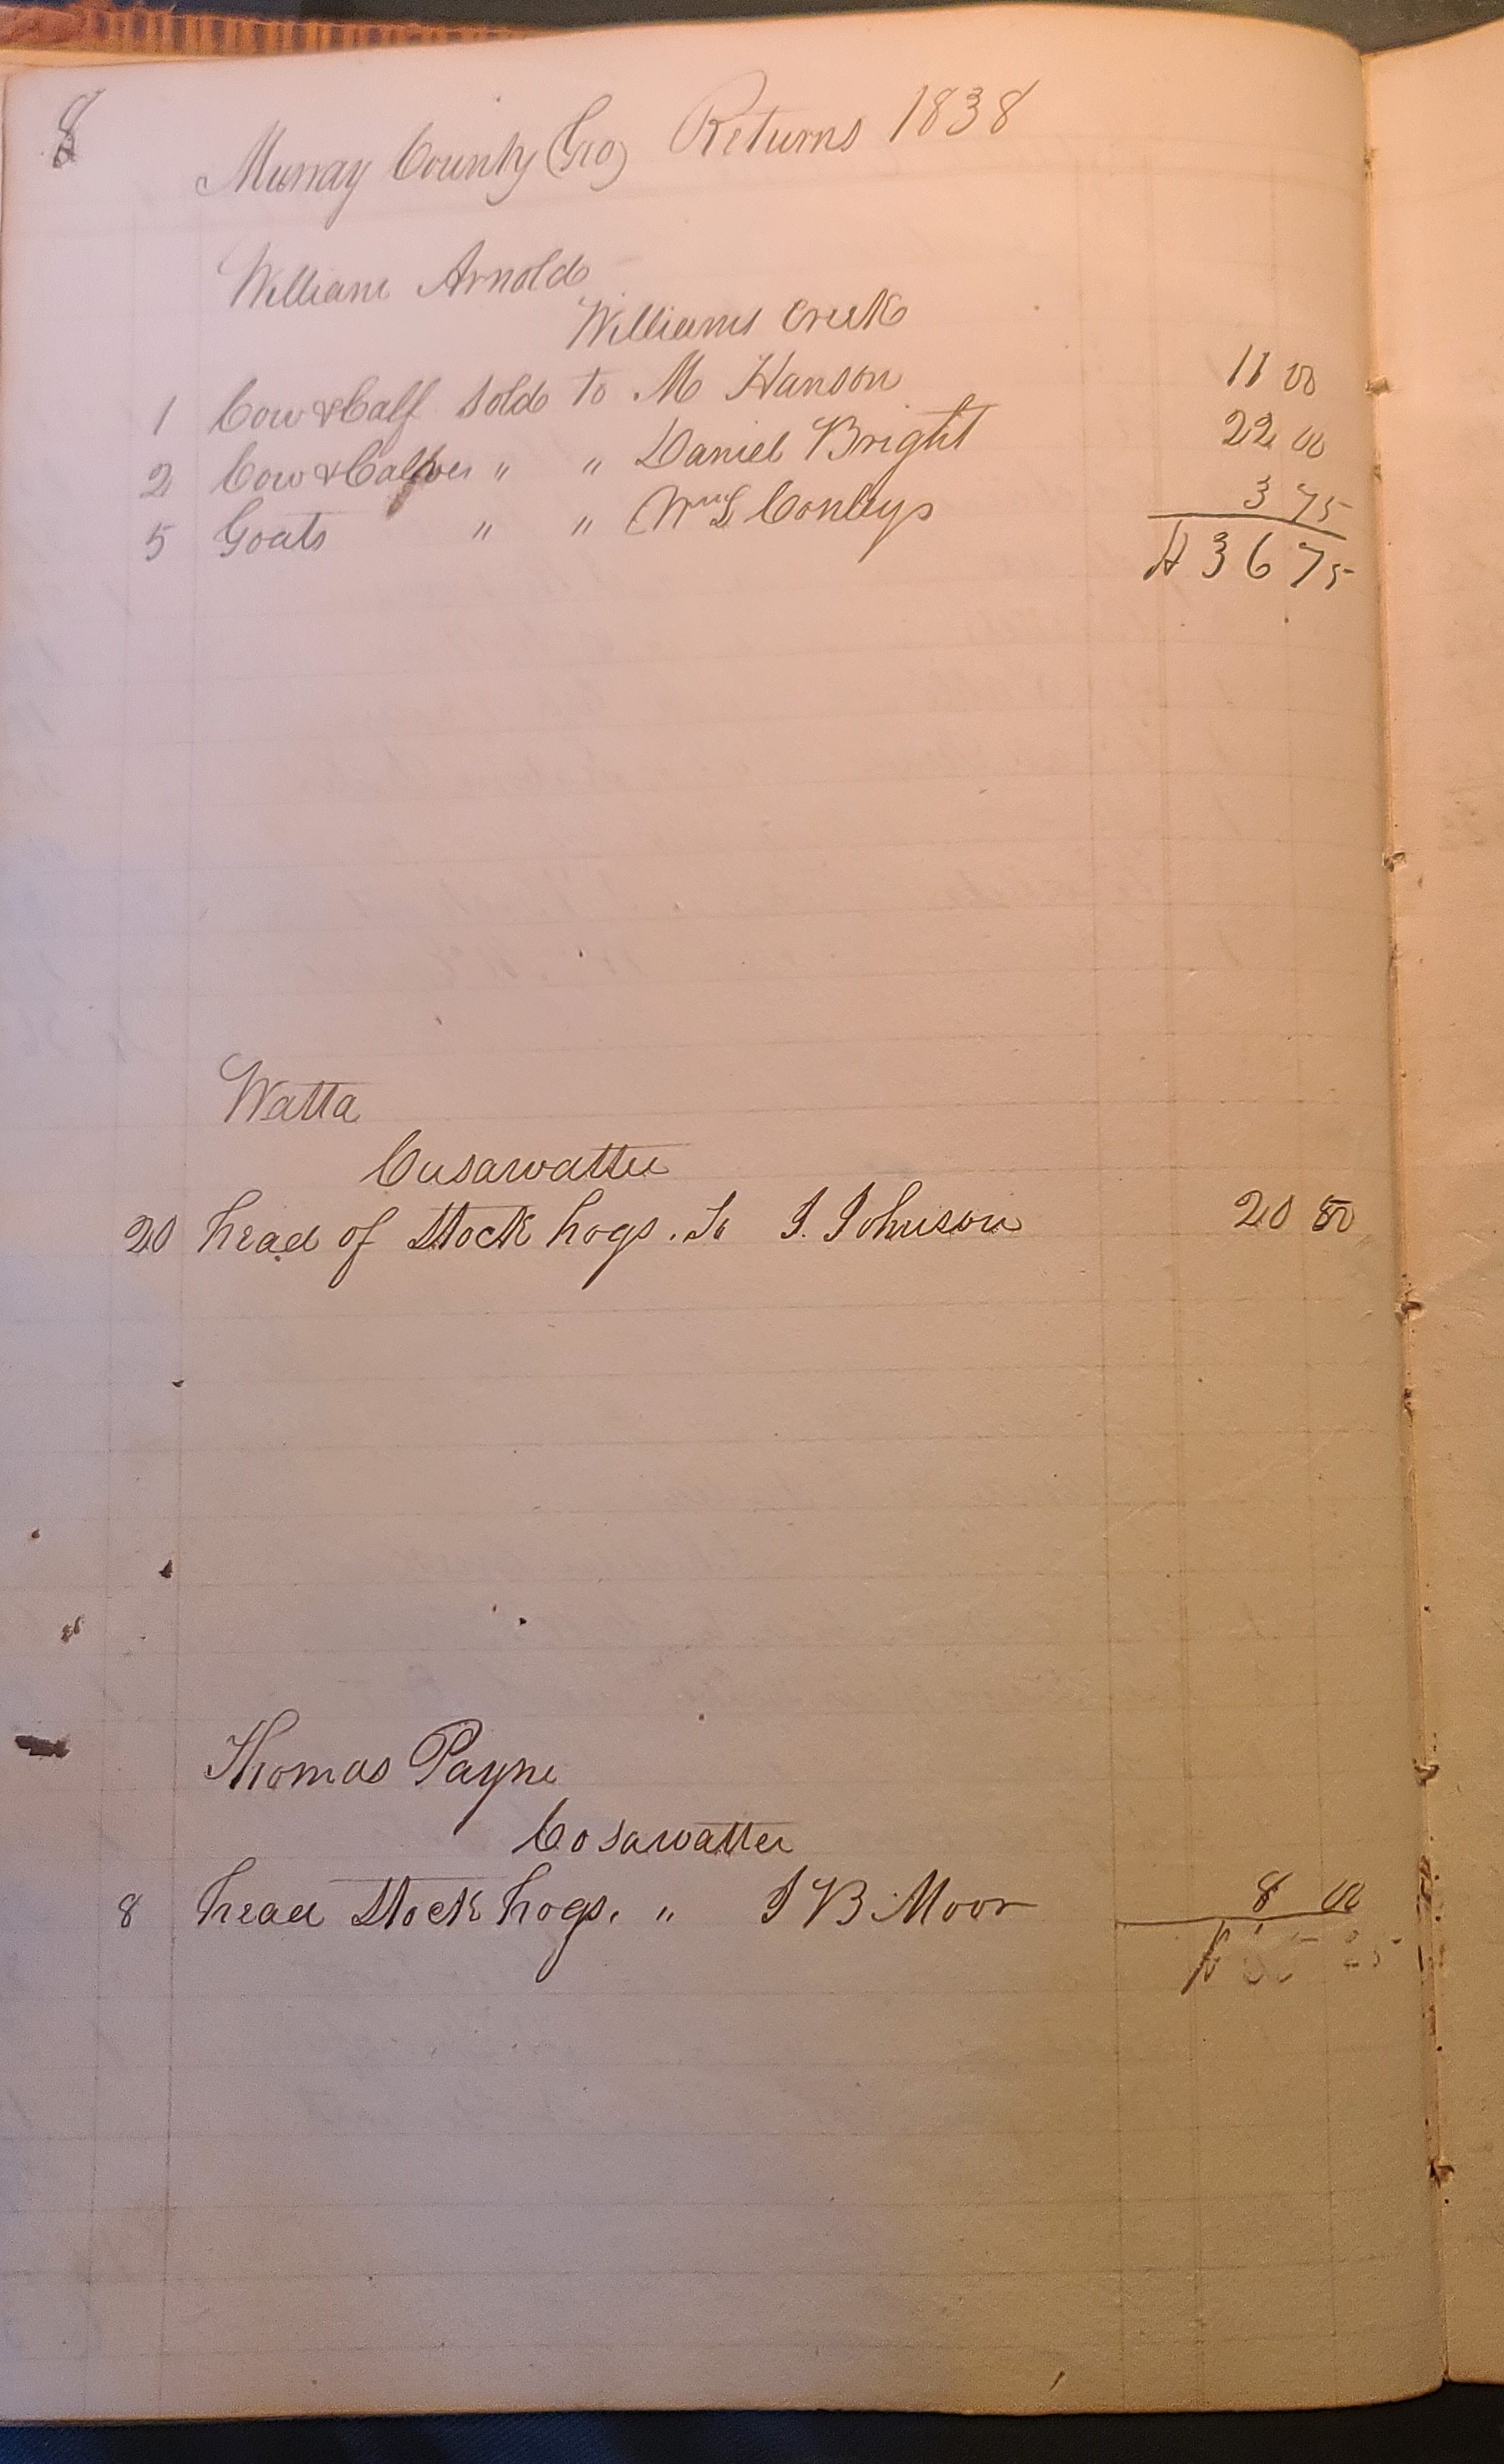 8
Murray County (Geo) Returns 1838
William Arnold
Williams Creek
1 Cow & Calf Sold to M Hanson 11 00
2 Cow & Calves " " Daniel Bright 22 00
5 Goats " " Wm L Conleys 3 75
$ 36 75
Watta
Cusawattee
20 head of Stock hogs. To J. Johnson 20 50
Thomas Payne
Cosawattee
8 head Stock hogs. " J B Moor 8 00